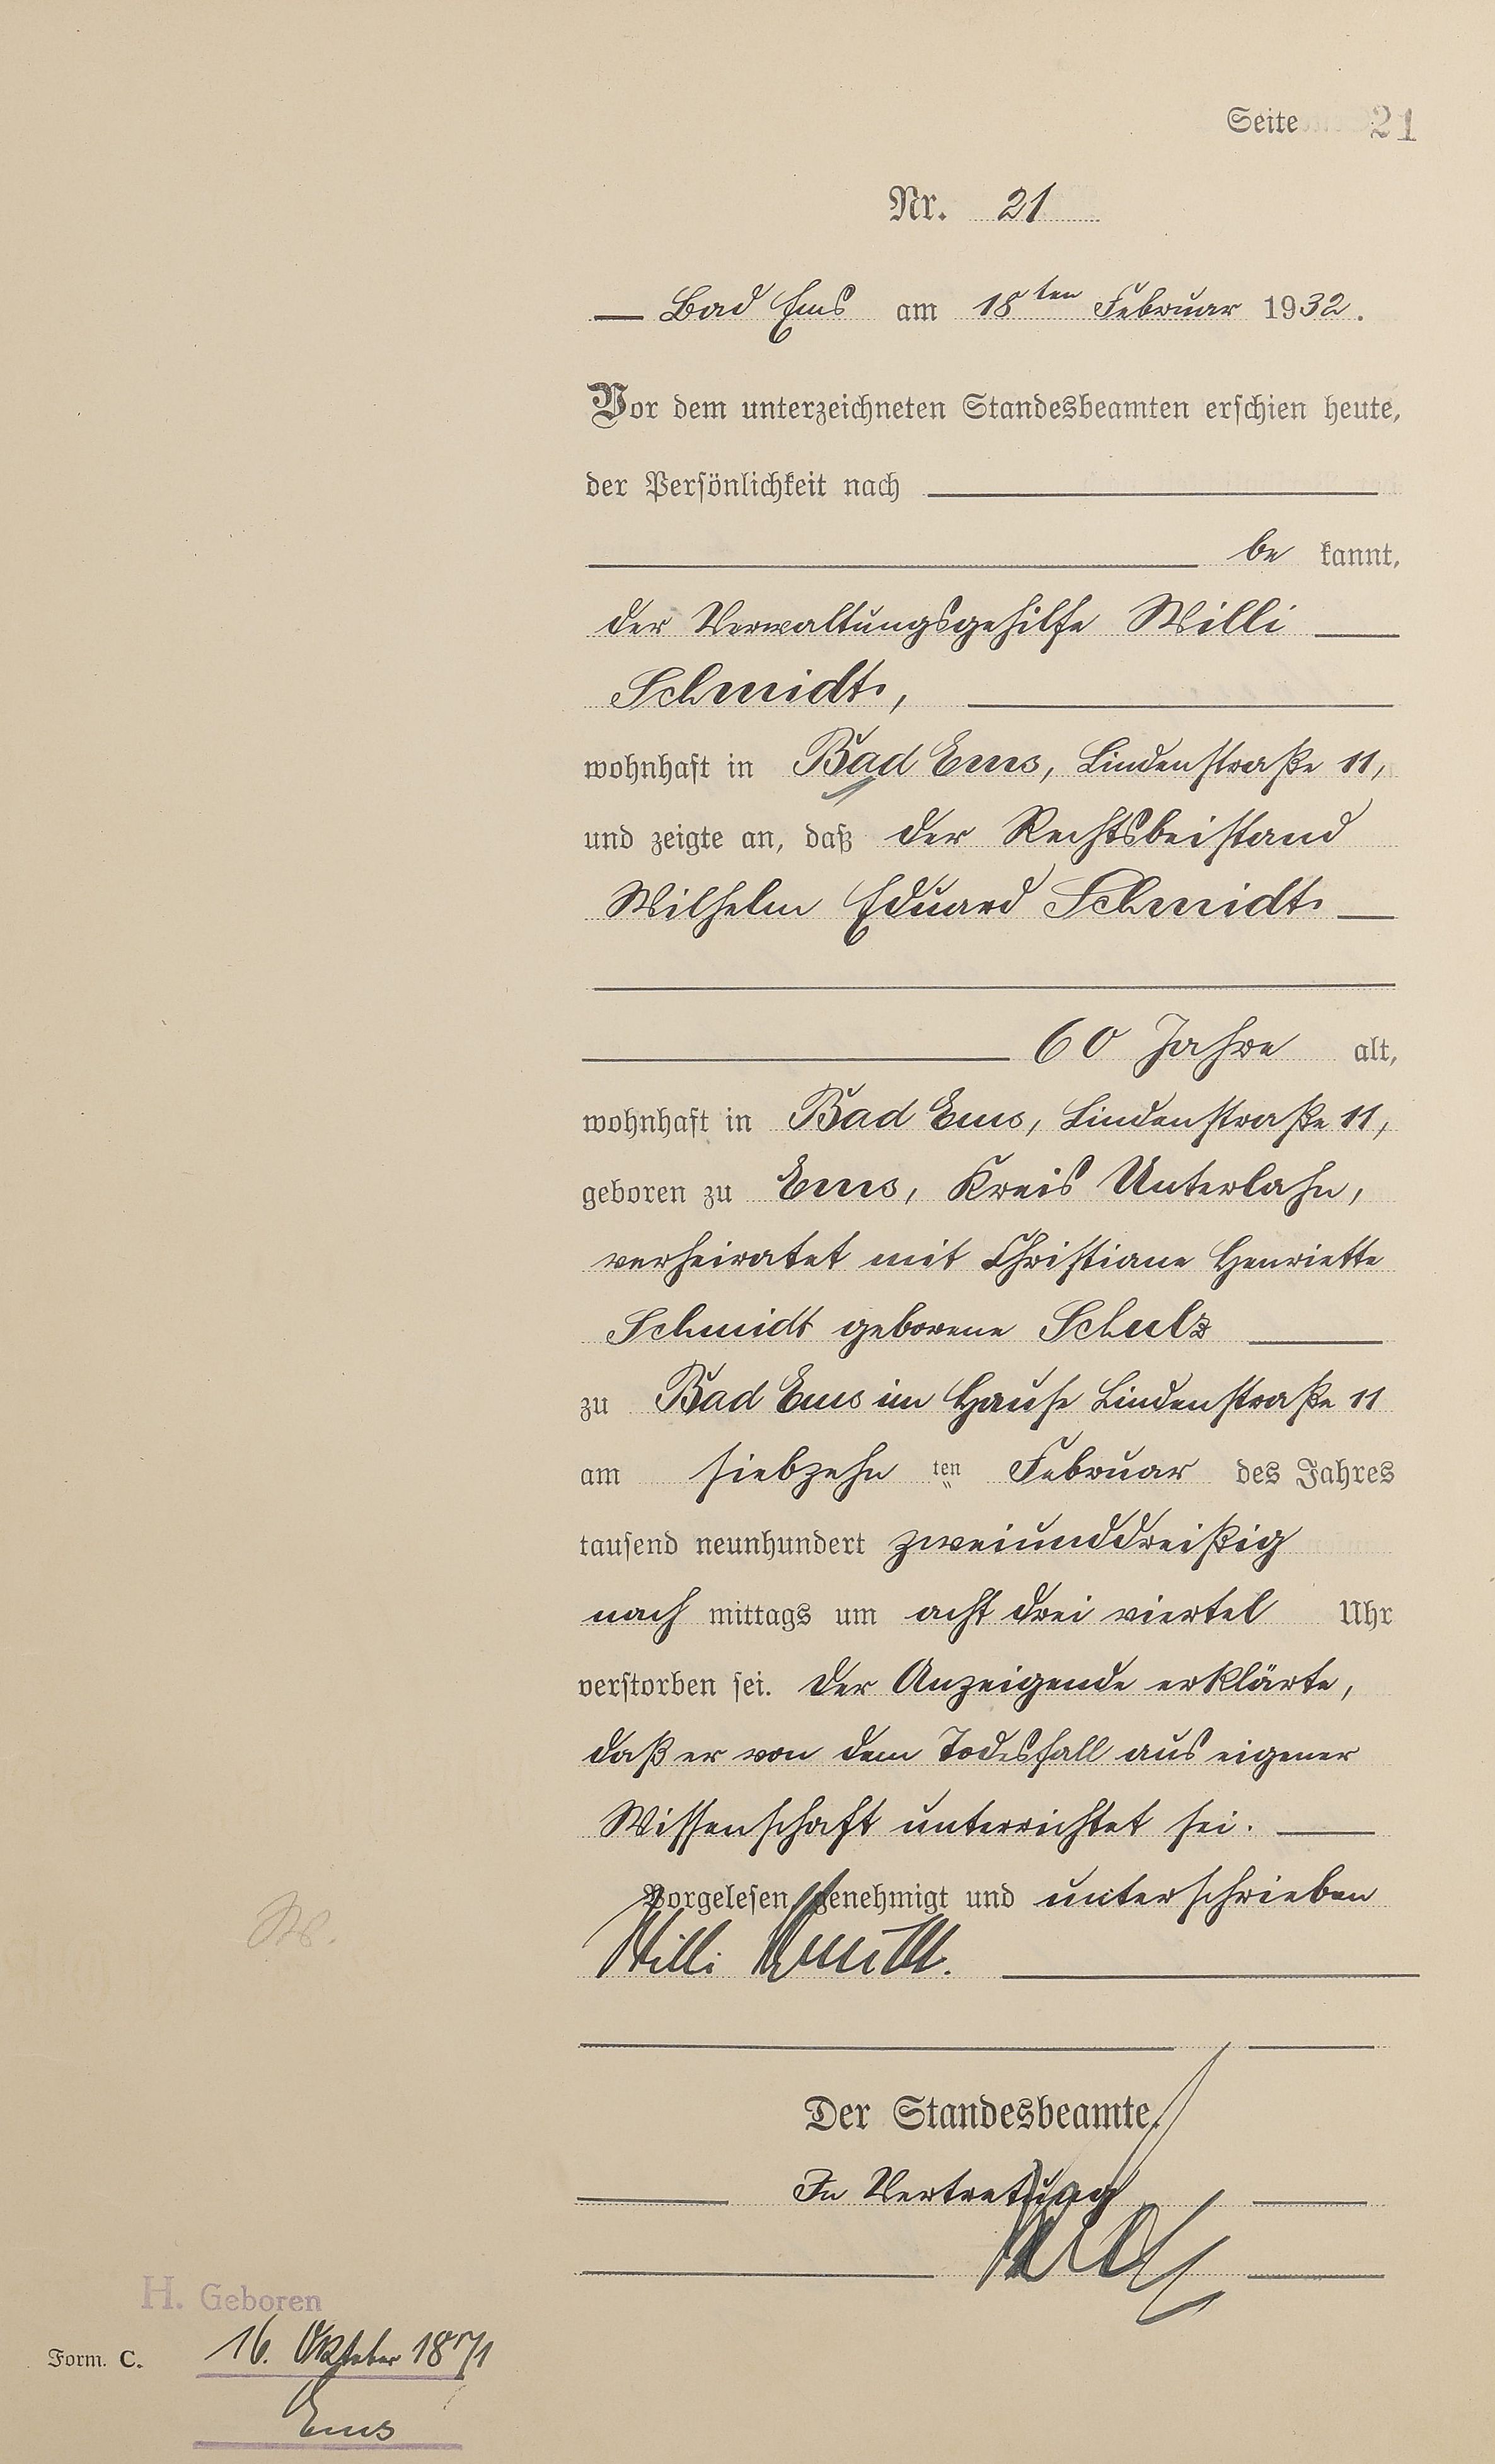 Seite 21
Nr. 21
Bad Ems am 18ten Februar 1932.
Vor dem unterzeichneten Standesbeamten erschien heute,
der Persönlichkeit nach
be kannt,
der Verwaltungsgehilfe Willi
Schmidt,
wohnhaft in Bad Ems, Lindenstraße 11,
und zeigte an, daß der Rechtsbeistand
Wilhelm Eduard Schmidt
60 Jahre alt,
wohnhaft in Bad Ems, Lindenstraße 11,
geboren zu Ems, Kreis Unterlahn,
verheiratet mit Christiane Henriette
Schmidt geborene Schulz
zu Bad Ems im Hause Lindenstraße 11
am siebzehn ten Februar des Jahres
tausend neunhundert zweiunddreißig
nach mittags um acht drei viertel Uhr
verstorben sei. Der Anzeigende erklärte,
daß er von dem Todesfall aus eigener
Wissenschaft unterrichtet sei.
Vorgelesen, genehmigt und unterschrieben
Willi Schmidt.
Der Standesbeamte.
In Vertretung
H. Geboren
Form. C. 16. Oktober 1871
Ems